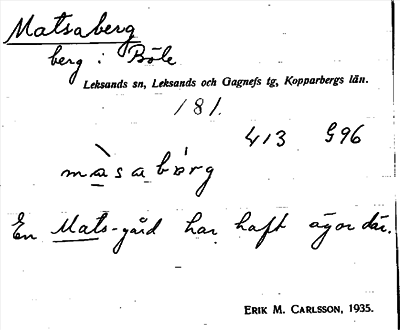 Matsaberg
berg i Böle
Leksands sn, Leksands och Gagnefs tg, Kopparbergs län.
181.
413 G96
màsabárg
En Mats-gård har haft ägor där.
ERIK M. CARLSSON, 1935.